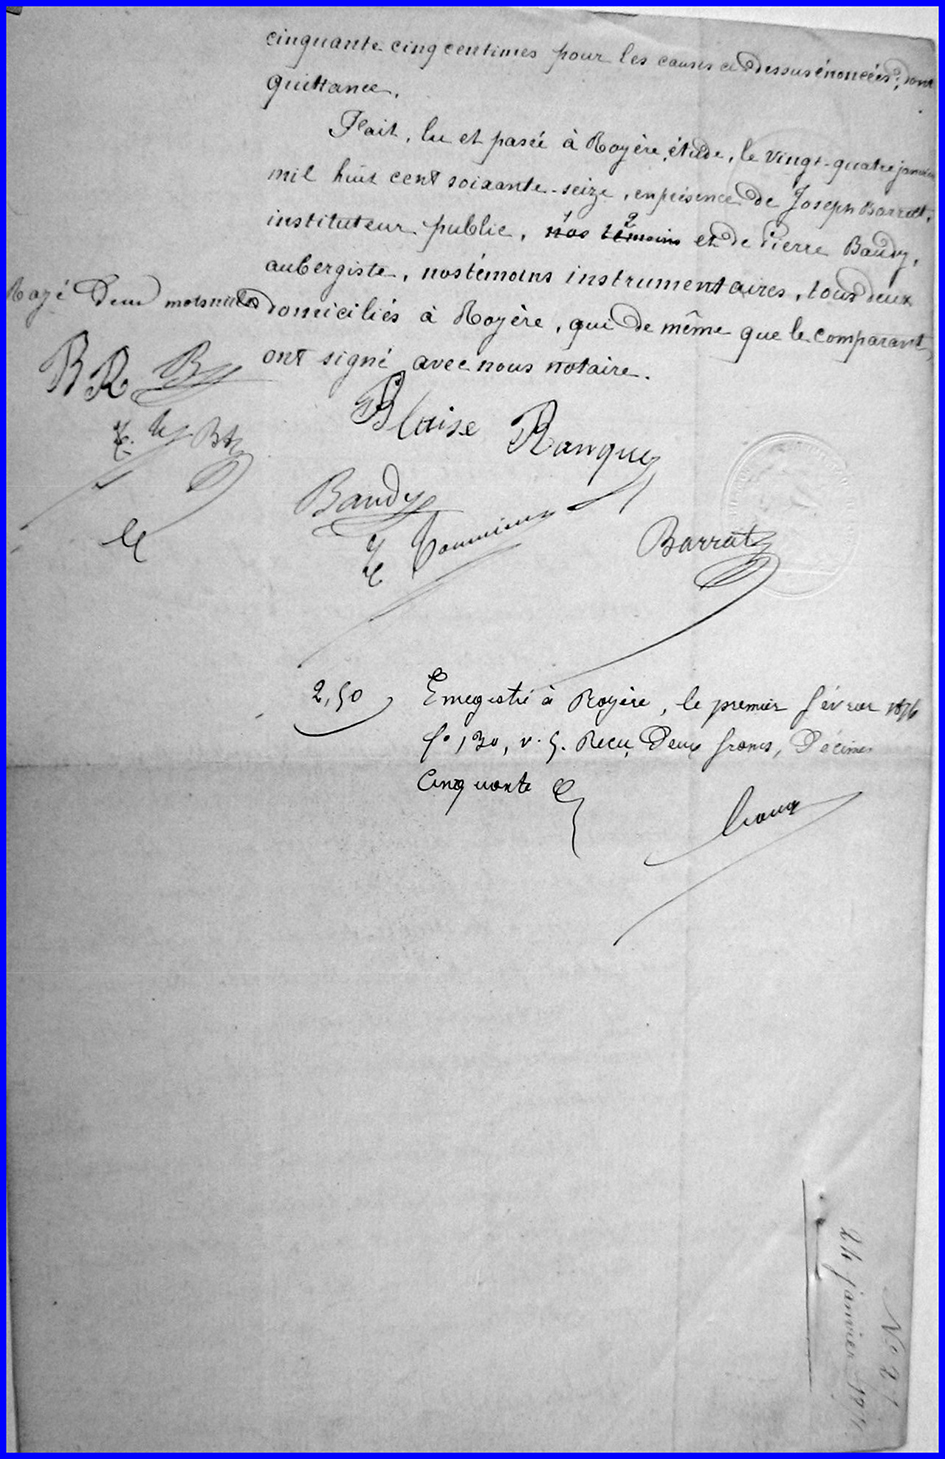 cinquante cinq centimes pour les causes ci dessus énoncées, dont
quittance.
Fait, lu et passé à Royère, étude, le vingt-quatre janvier
mil huit cent soixante-seize, en présence de Joseph Barrat,
instituteur public, nos témoins et de Pierre Baudy,
1 2
aubergiste, nos témoins instrumentaires, tous deux
domiciliés à Royère, qui de même que le comparant,
ont signé avec nous notaire.
Rayé Deux mots nuls
BR By
Blaise Ranque
Baudy
Barrat
2,50 Enregistré à Royère, le premier février 1876
fo 130, v. 5. Reçu Deux francs, Décimes
Cinquante
No 21
24 janvier 187